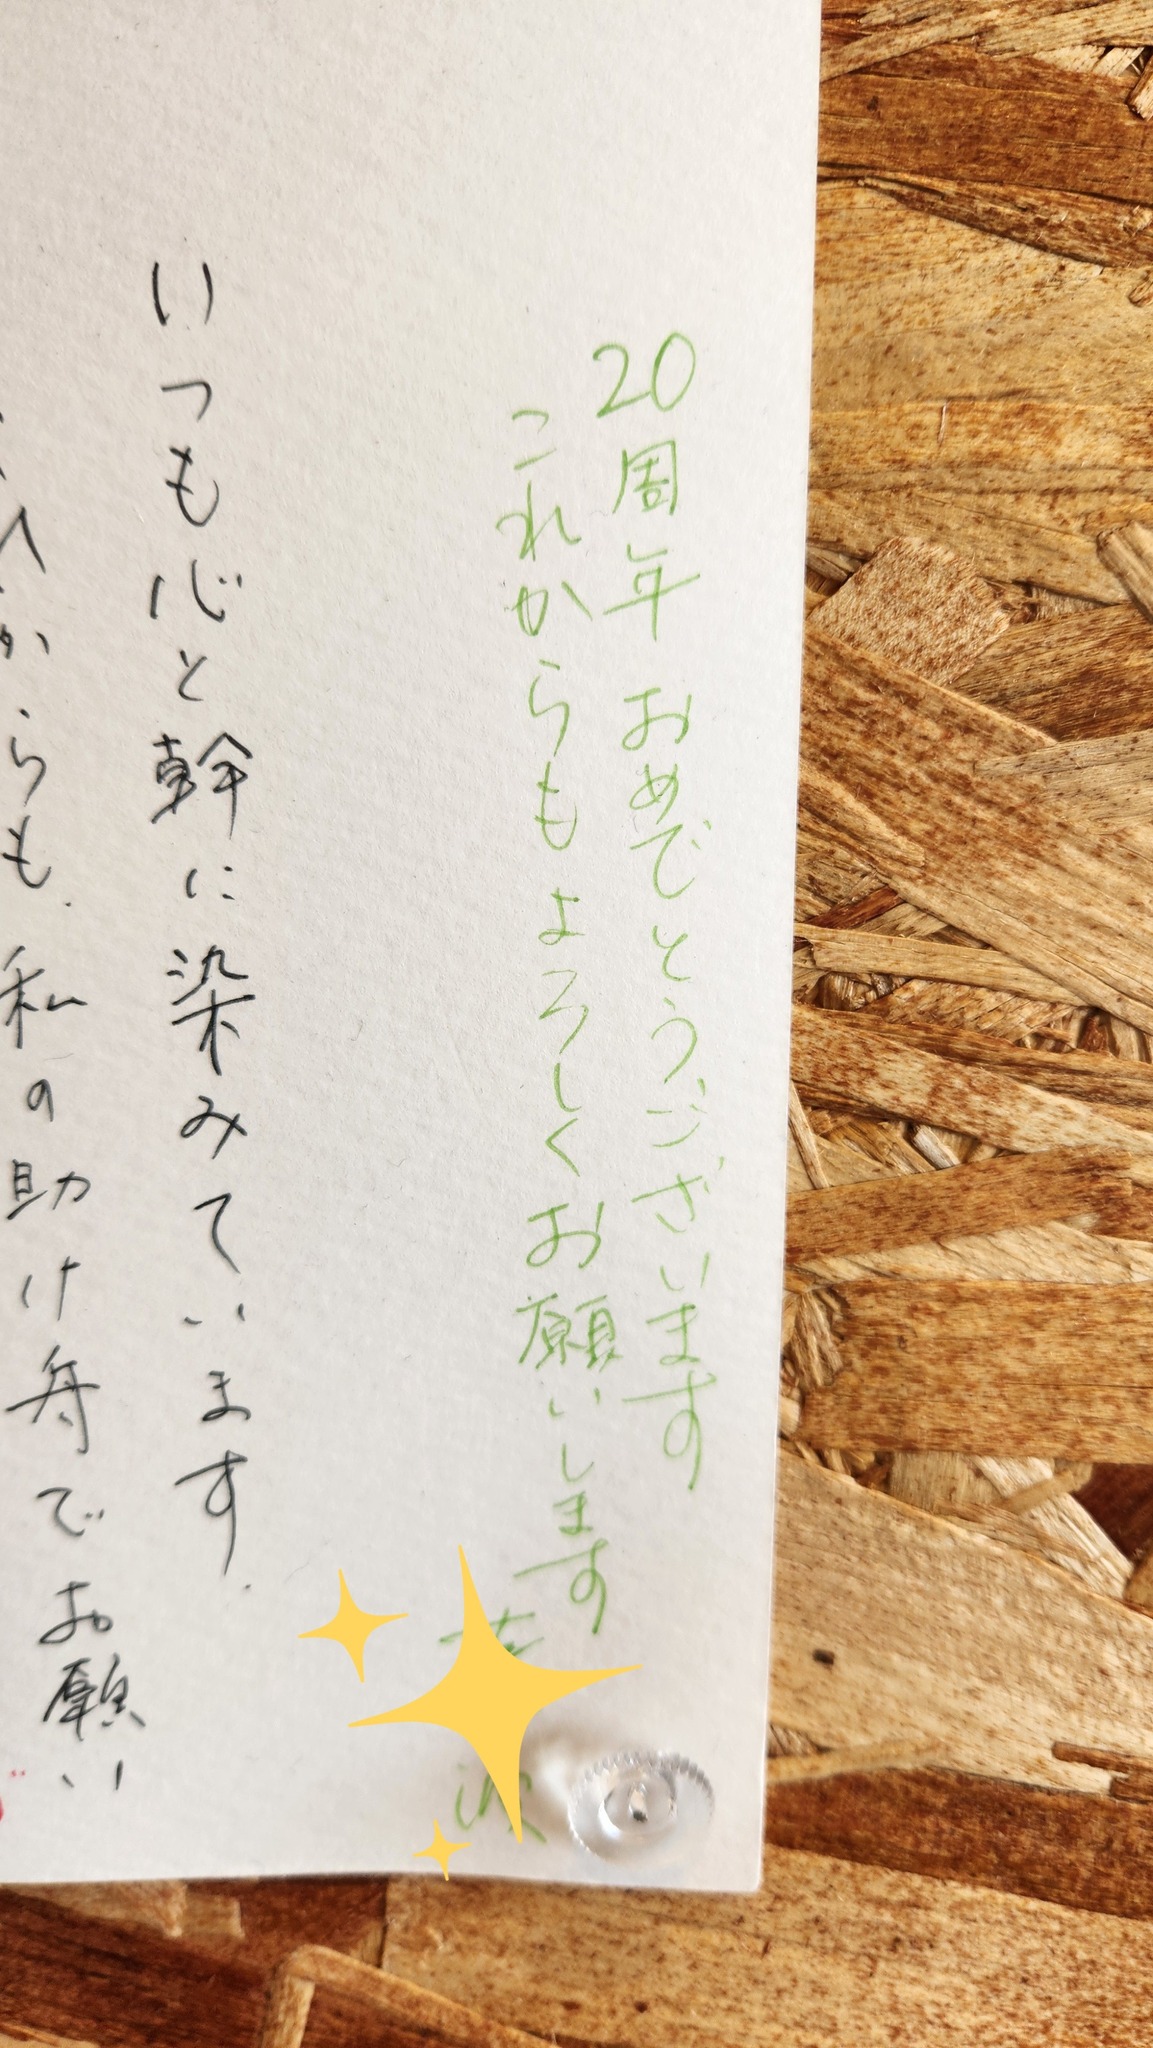 20周年 おめでとうございます
これからもよろしくお願いします
いつも心と幹に染みています.
からも、私の助け舟でお願い